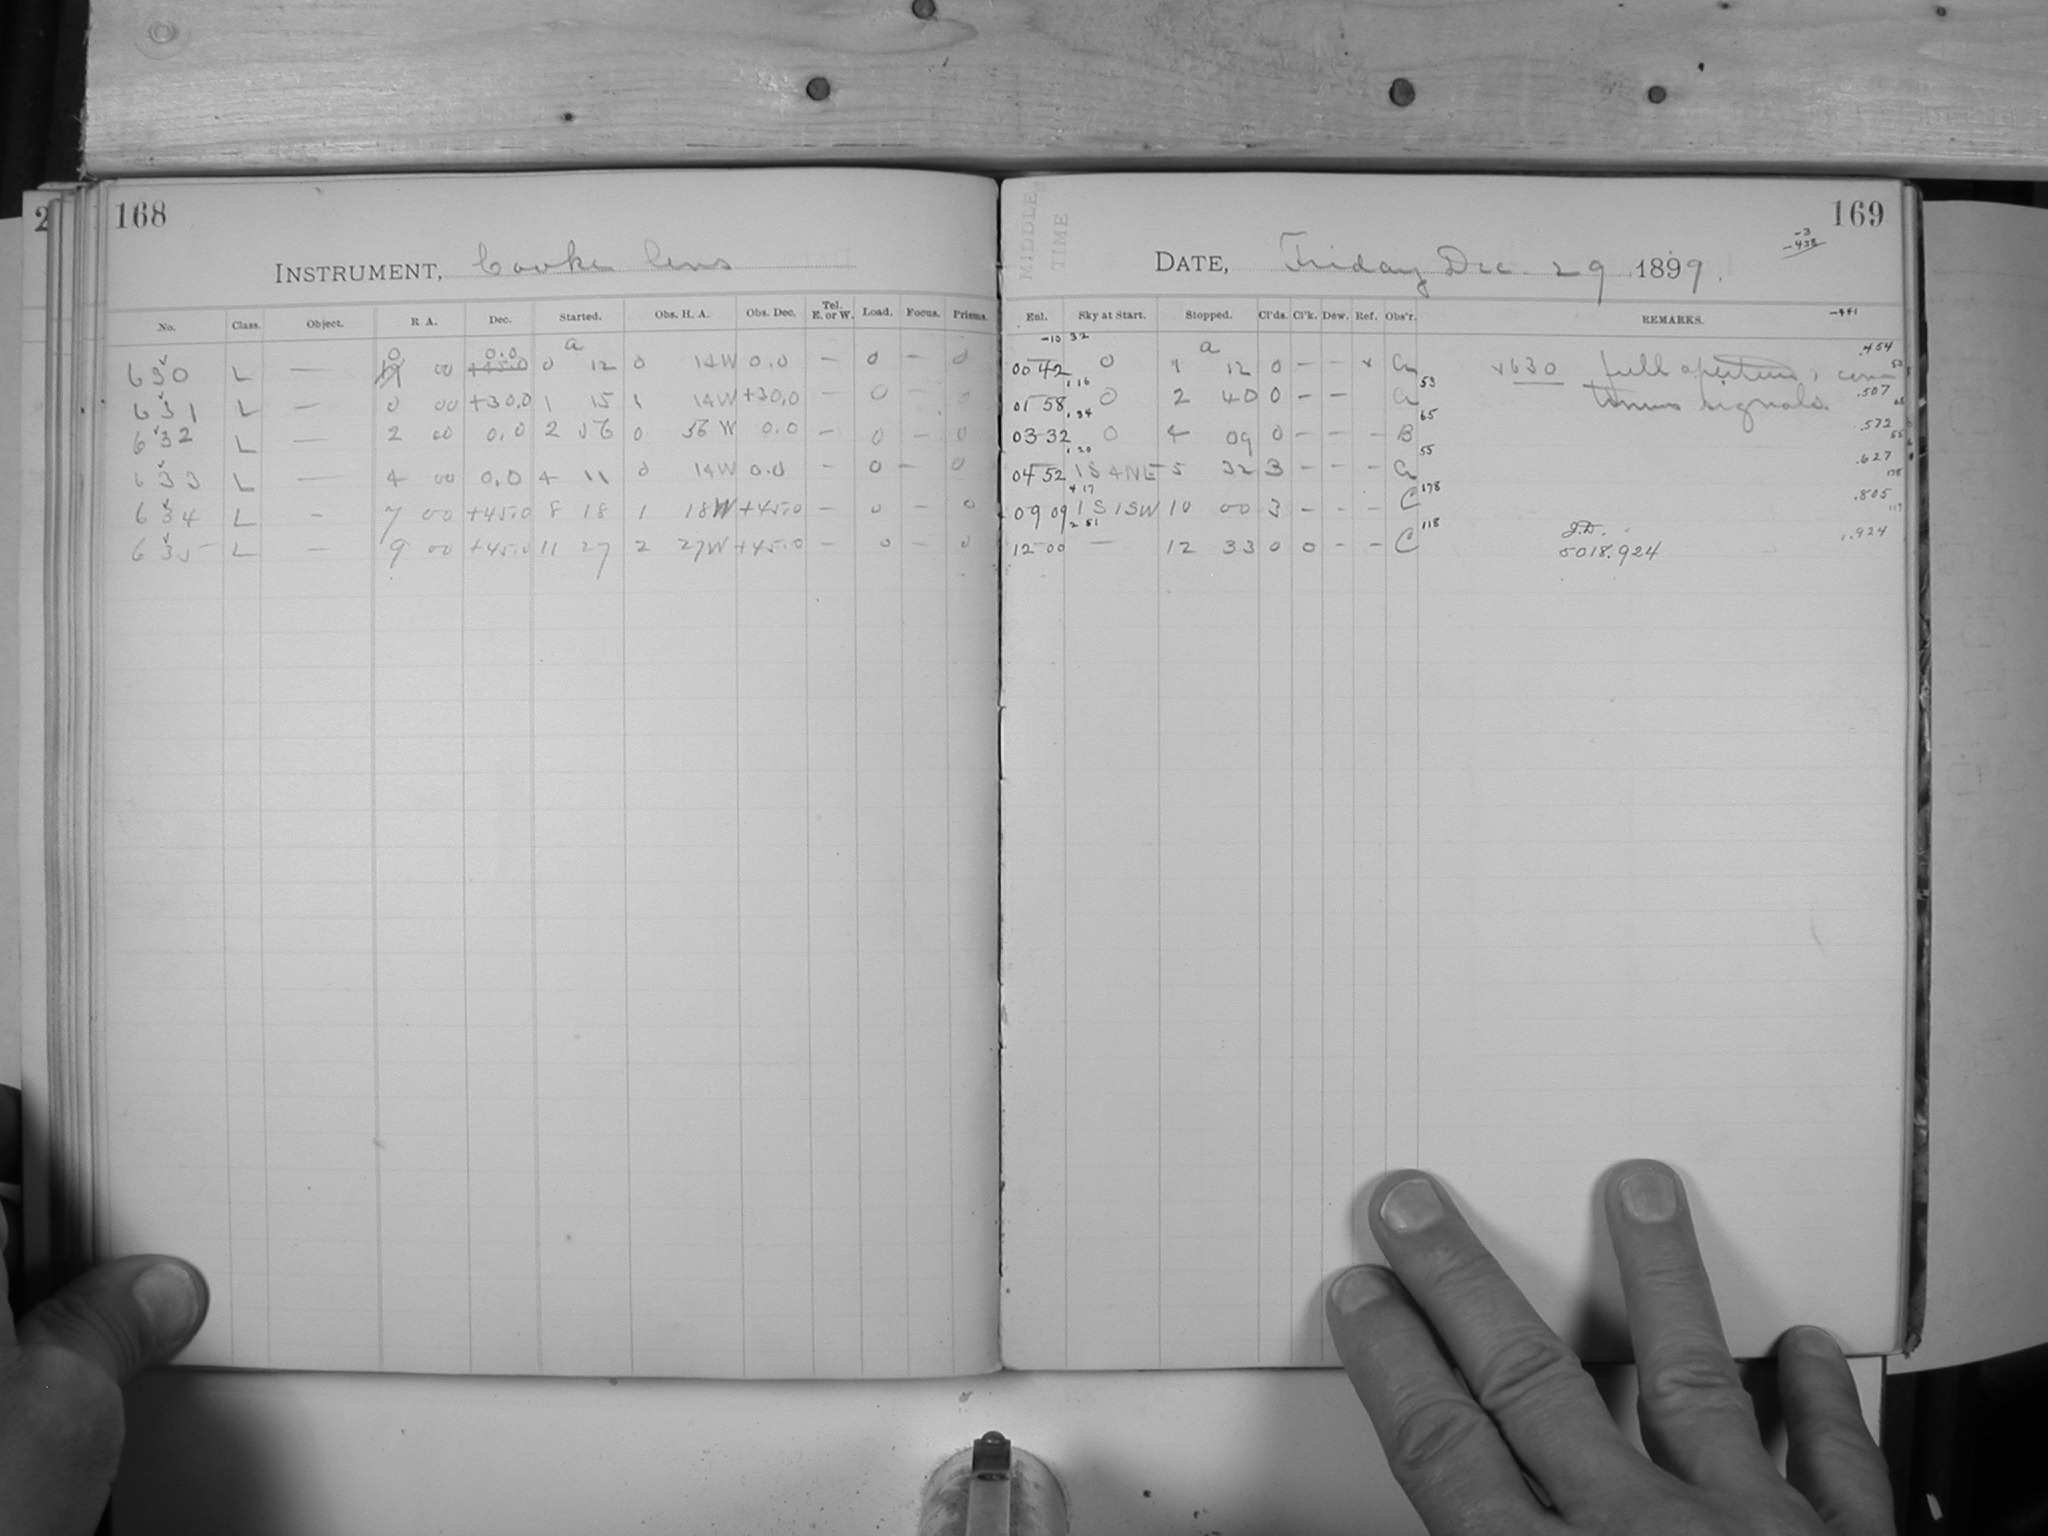 2
168
INSTRUMENT, Cooke lens
No. Class. Object. R. A. Dec. Started. Obs. H. A. Obs. Dec. Tel. E. or W. Load. Focus. Prisms.
0 0.0 a
630 L — 19 00 +45.0 0 12 0 14W 0.0 — 0 — 0
631 L — 0 00 +30.0 1 15 1 14W +30.0 — 0 - 0
632 L — 2 00 0.0 2 56 0 56W 0.0 — 0 — 0
633 L — 4 00 0.0 4 11 0 14W 0.0 — 0 — 0
634 L — 7 00 +45.0 8 18 1 18W +45.0 — 0 — 0
635 L — 9 00 +45.0 11 27 2 27W +45.0 — 0 — 0
MIDDLE
TIME
169
-3
-438
DATE, Friday Dec. 29 1899.
Enl. Sky at Start. Stopped. Cl'ds. Cl'k. Dew. Ref. Obs'r. REMARKS. -441
-10 32 a .454
00 42 0 1 12 0 — — x x630 full aperture, con-
1.16 53 53
01 58 0 2 40 0 — — tinuous signals .507
1.34 65
03 32 0 4 09 0 — — — B .572
1.20 55 55
04 52 1S4NE 5 32 3 — — — .627
4 17 178 178
09 09 1S1SW 10 00 3 - - - C .805
2 51 118 J.D. 119
12 00 — 12 33 0 0 - - C 5018.924 .924